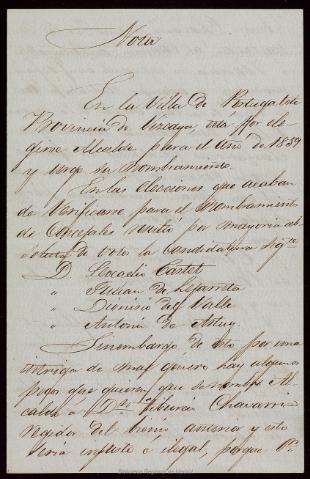 Nota
En la Villa de Portugalete
Provincia de Vizcaya está por ele
girse Alcalde para el Año de 1859
y urge su Nombramiento.
En las elecciones que acaban
de Verificarse para el Nombramiento
de Concejales resultó por mayoria ab
soluta de votos la Candidatura sigte
D. Leocadio Castet
" Julian de
" Dionisio del Valle
" Antonio de
Sinembargo de esto por una
intriga de mal género hay algunos
pocos que quieren que se nombre Al
calde a Dn Liborio Chavarri
Regidor del bienio anterior y esto
seria injusto é ilegal, porque 1º